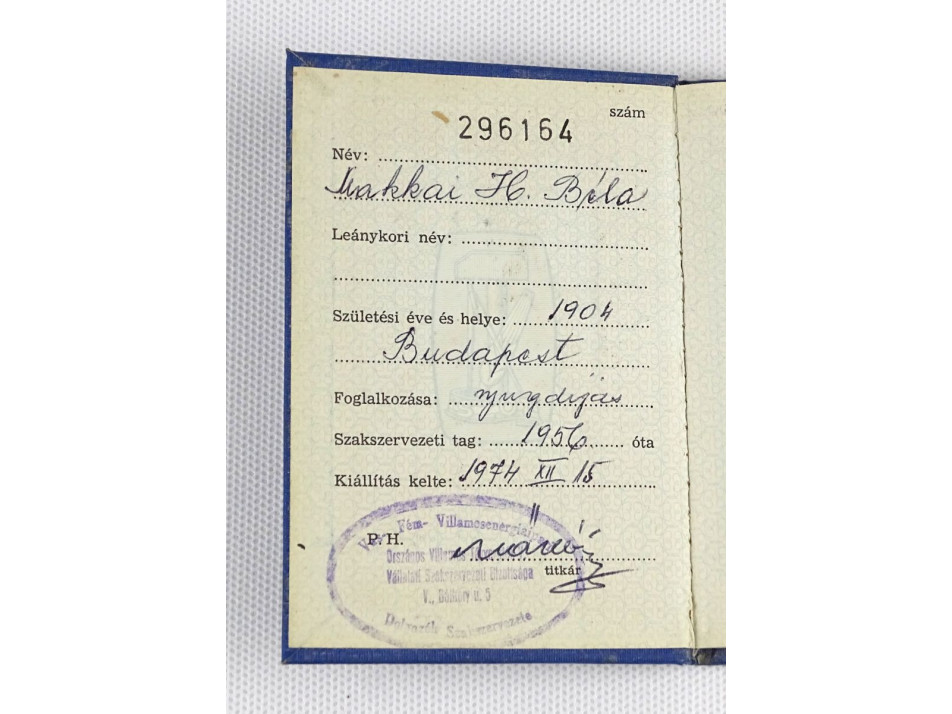 szám
296164
Név:
Makkai H. Béla
Leánykori név:
Születési éve és helye: 1904
Budapest
Foglalkozása: nyugdíjás
Szakszervezeti tag: 1956 óta
Kiállítás kelte: 1974 XII 15
Fém- Villamosenergiaipari
P. H.
Országos Villamos
Vállalati Szakszervezeti Bizottsága
titkár
V., u. 5
Dolgozók Szakszervezete